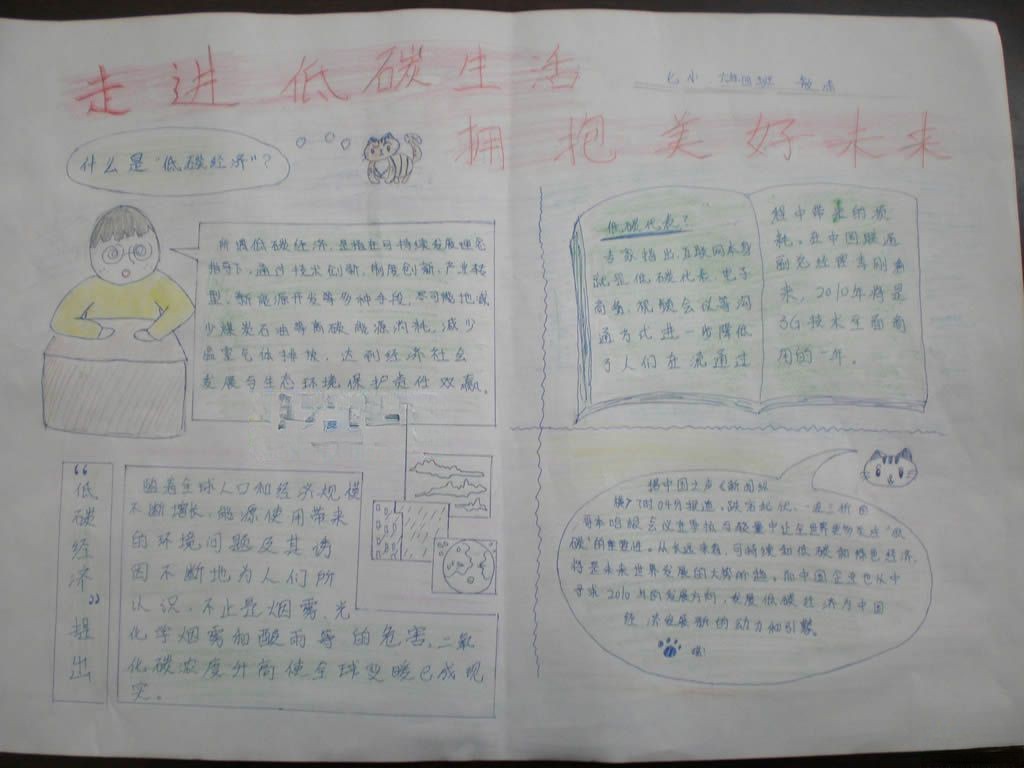 走进低碳生活
拥抱美好未来
什么是"低碳经济"?
所谓低碳经济,是指在可持续发展理念
指导下,通过技术创新,制度创新,产业转
型、新能源开发等多种手段,尽可能地减
少煤炭石油等高碳能源消耗,减少
温室气体排放,达到经济社会
发展与生态环境保护责任双赢。
低碳代表?
专家指出互联网本身
就是低碳代表,电子
商务,视频会议等沟
通方式进一步降低
了人们在流通过
程中带来的损
耗。在中国联通
副总经理李刚看
来,2010年将是
3G技术全面商
用的一年.
"低碳经济"提出
随着全球人口和经济规模
不断增长,能源使用带来
的环境问题及其诱
因不断地为人们所
认识,不止是烟雾、光
化学烟雾和酸雨等的危害,二氧
化碳浓度升高使全球变暖已成现
实。
据中国之声《新闻纵
横》7时04分报道,
哥本哈根会议
碳"的
将是未来世界发展的大势所趋。而中国企业也从中
寻求2010年的发展方向,发展低碳经济为中国
经济发展新的动力和引擎。